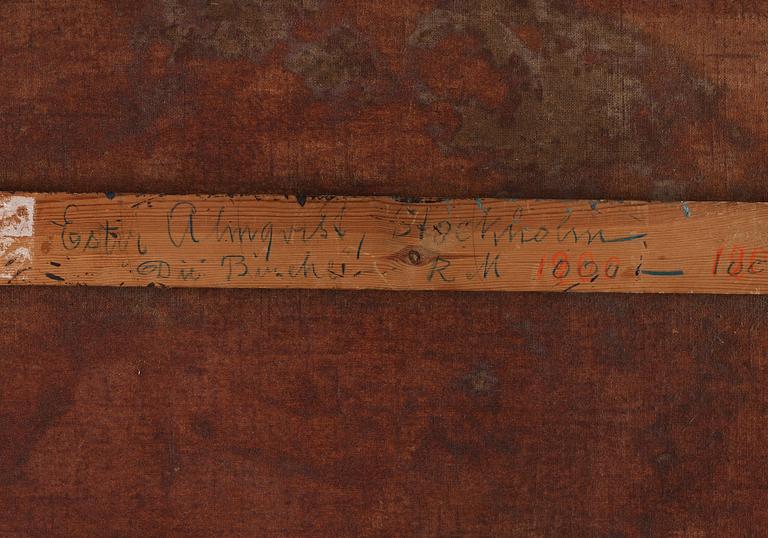 Ester Almqvist, Stockholm
Die Birche. R M 1000:—